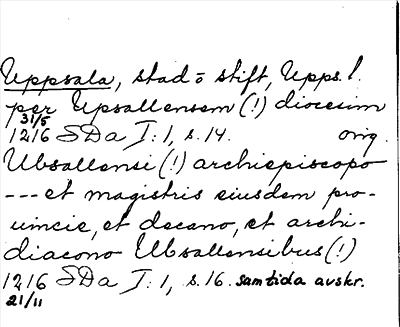 Uppsala, stad o stift, Upps. l.
per Upsallensem (!) diocesim
31/5
1216 SDa I: 1, s. 14. orig.
Ubsallensi (!) archiepiscopo
--- et magistris eiusdem pro-
uincie, et decano, et archi-
diacono Ubsallensibus (!)
1216 SDa I: 1, s. 16. samtida avskr.
21/11